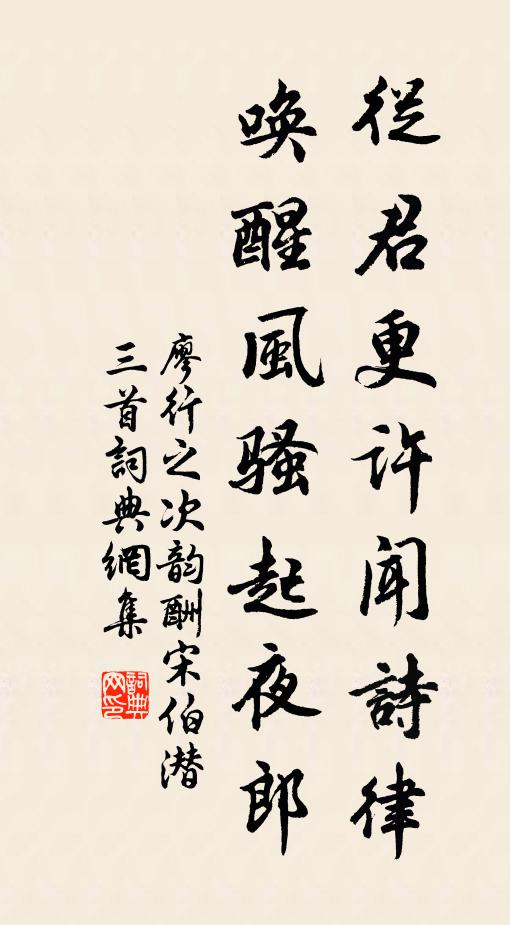 從君更许闻詩律
喚醒風骚起夜郎
廖行之次韵酬宋伯潜
三首詞典網集
詞典网印